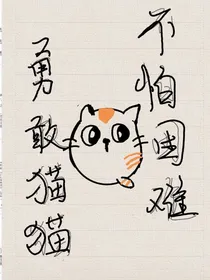 勇敢猫猫
不怕困难